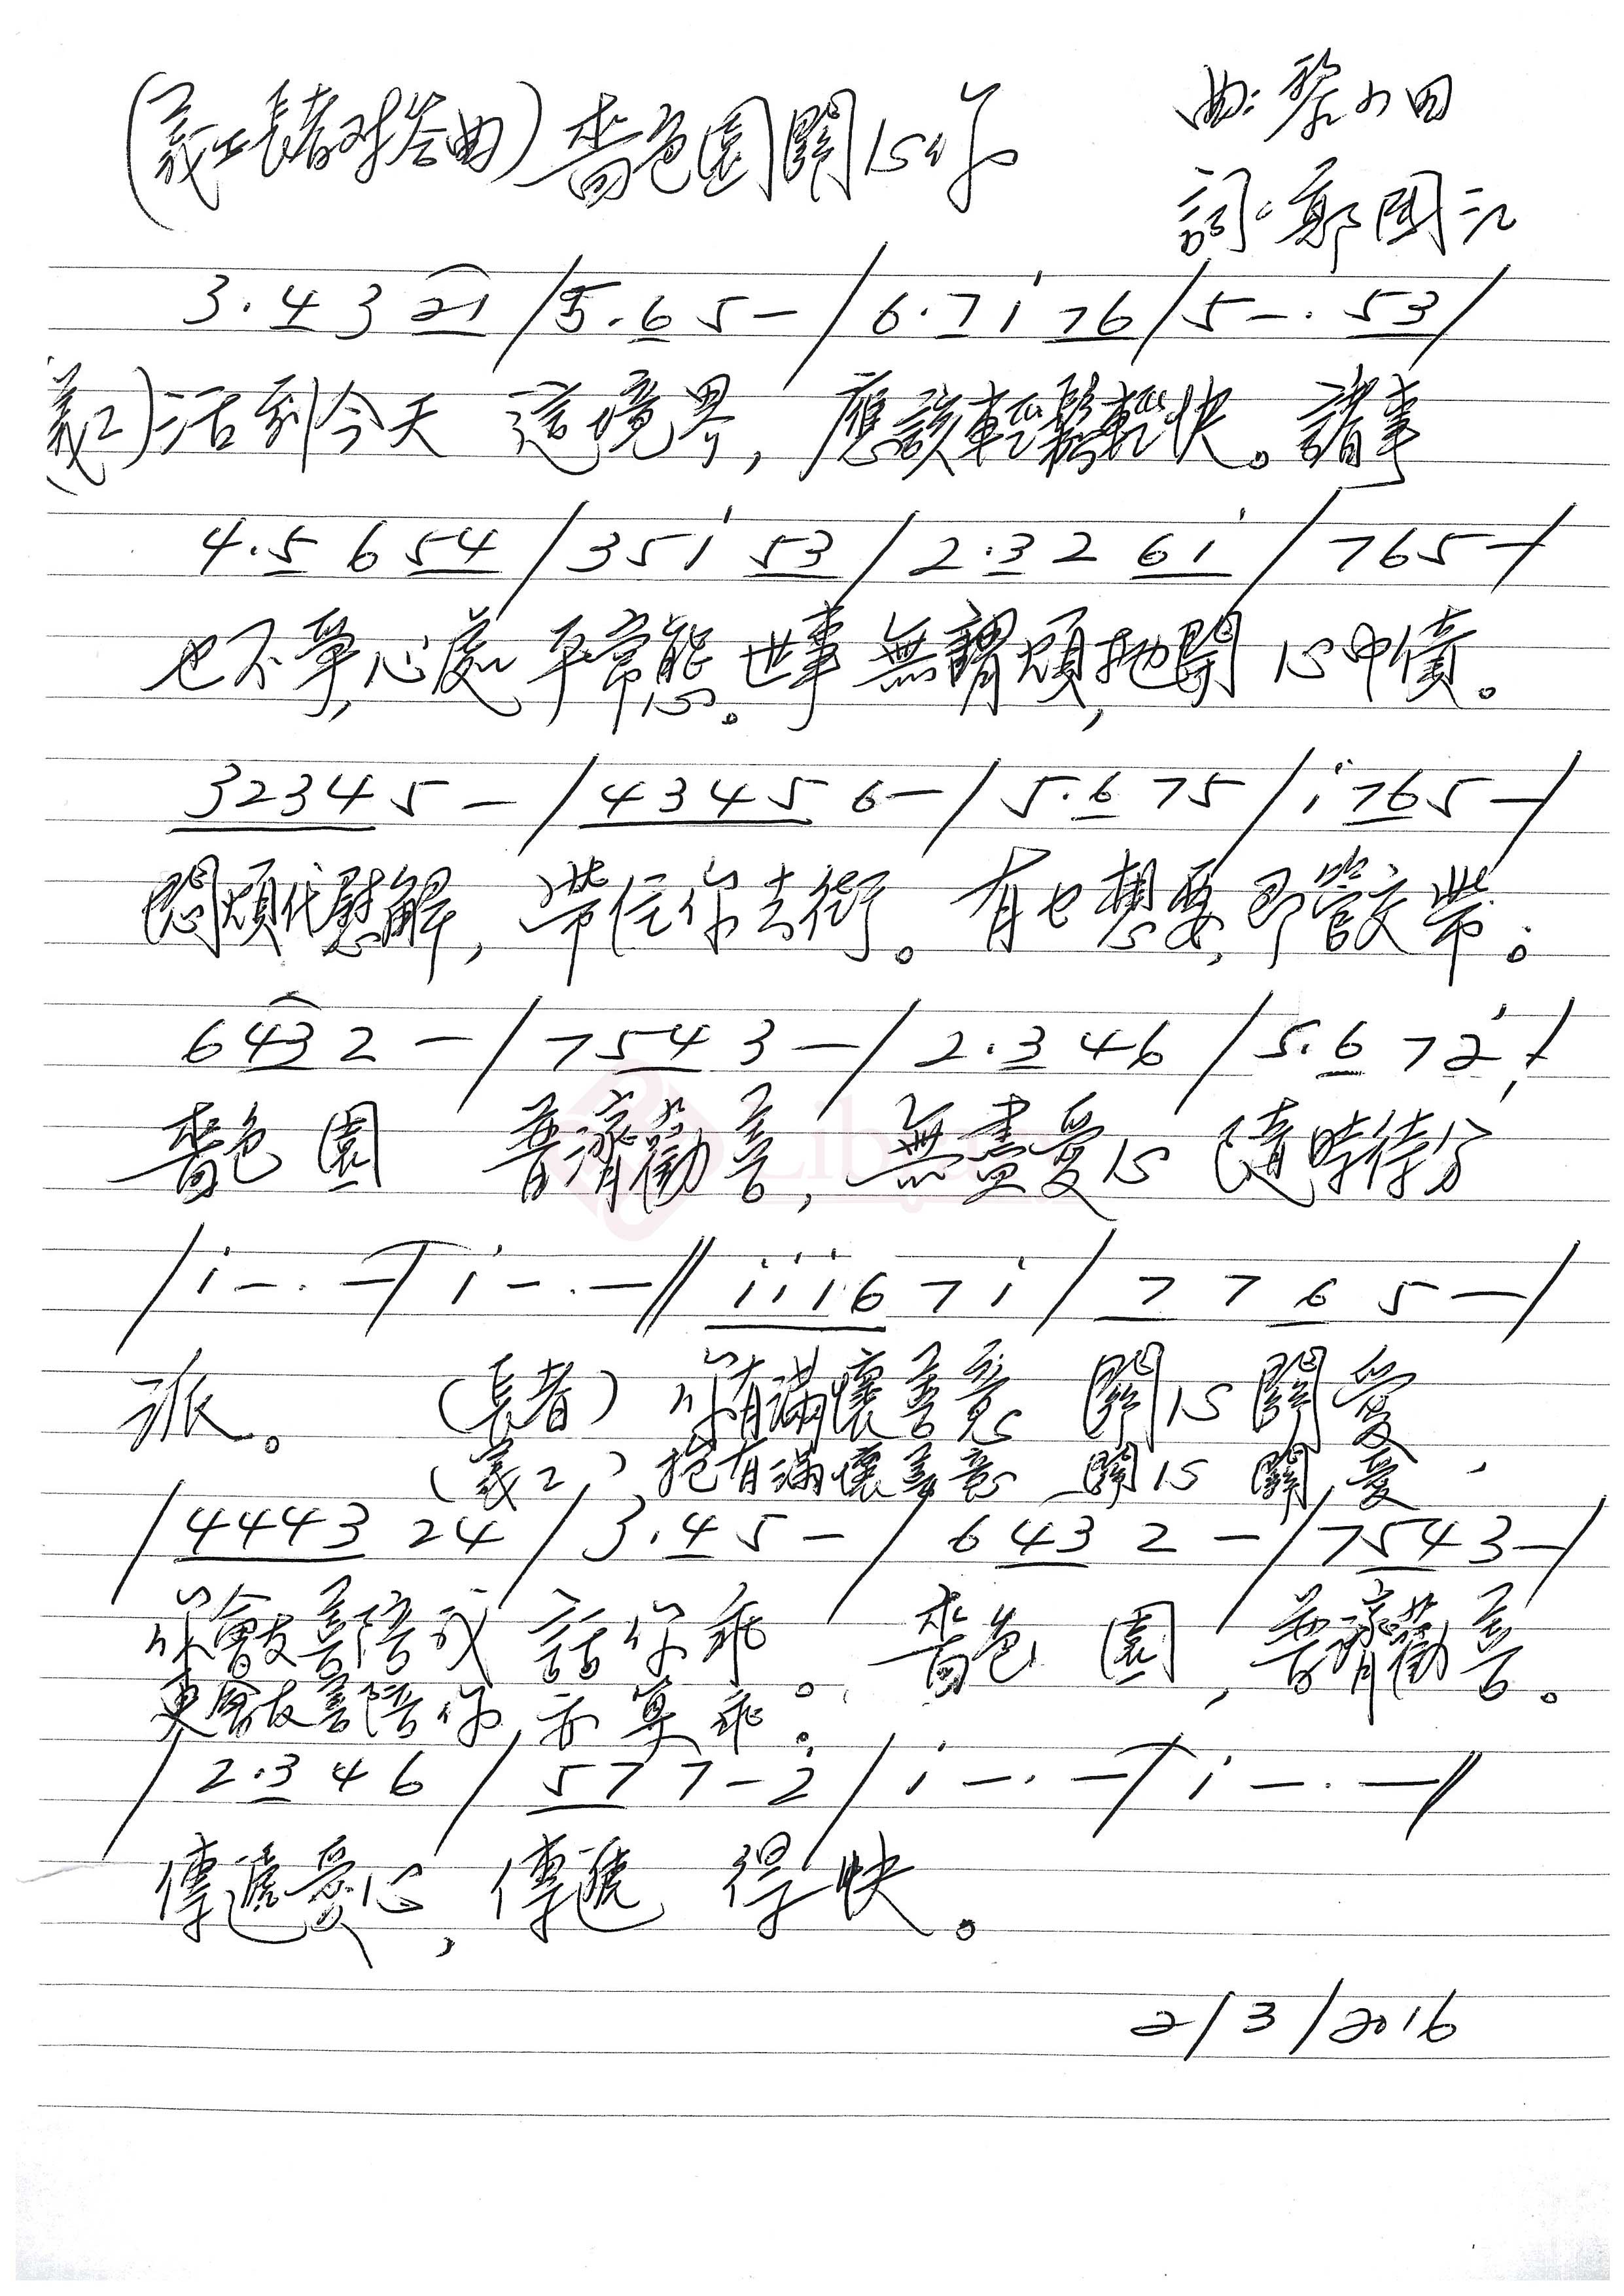 (義工長者對答曲) 嗇色園關心你
曲:黎小田
詞:鄭國江
3.4 3 21 / 5.6 5 - / 6.7 i 76 / 5 - . 53 /
義工) 活到今天 這境界, 應該輕鬆輕快。諸事
4.5 6 54 / 3 5 i 53 / 2.3 2 6i / 7 6 5 - /
也不爭,心處平常態。世事無謂煩,拋開心中債。
3234 5 - / 4345 6 - / 5.6 7 5 / i 76 5 - /
悶煩代慰解, 帶住你去街。有乜想要,即管交帶。
6 43 2 - / 7 54 3 - / 2.3 4 6 / 5.6 7 2 /
嗇色園 普濟勸善, 無盡愛心 隨時待分
/ i - . - / i - . - // i i i 6 7 i / 7 7 6 5 - /
派。 (長者) 你有滿懷善意 關心關愛
(義工) 抱有滿懷善意 關心關愛,
/ 4443 2 4 / 3.4 5 - / 6 43 2 - / 7 54 3 - /
你會友善陪我 話你乖。 嗇色園, 普濟勸善。
更會友善陪你,亦算乖。
/ 2.3 4 6 / 57 7 - 2 / i - . - / i - . - //
傳遞愛心, 傳遞得快。
2/3/2016